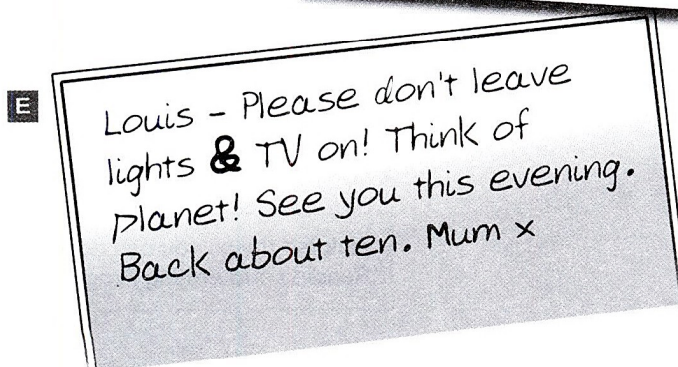 E
Louis - Please don't leave
lights & TV on! Think of
planet! See you this evening.
Back about ten. Mum x